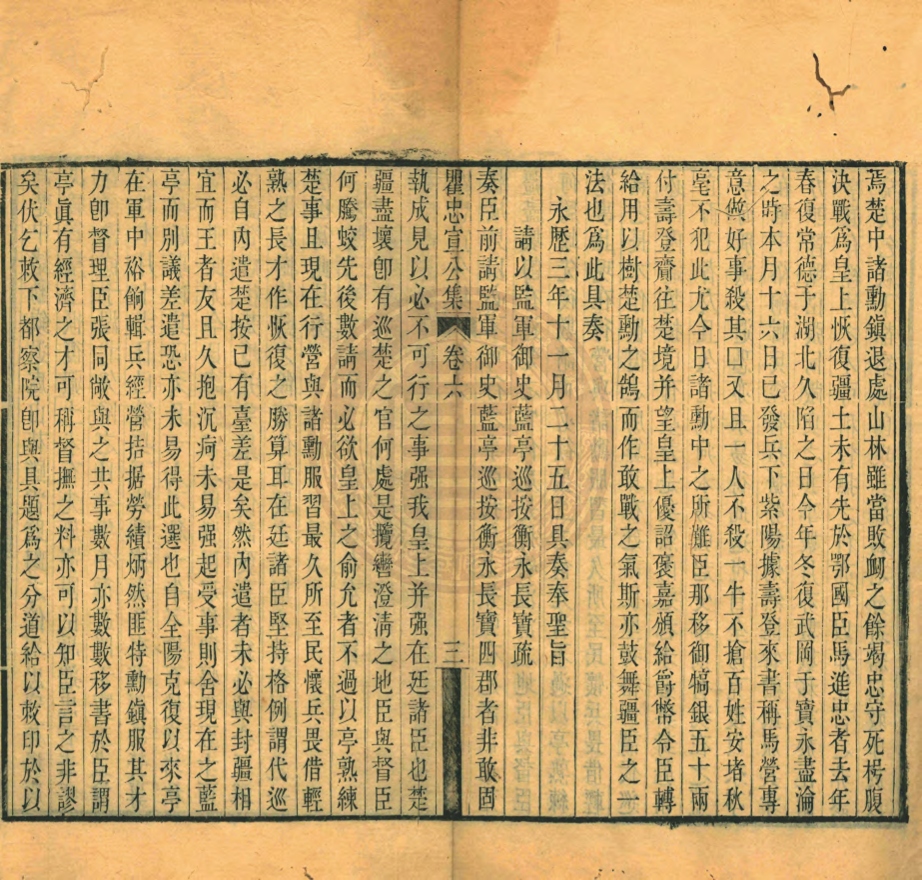 焉楚中諸勳鎮退處山林雖當敗衂之餘竭忠守死枵腹
決戰爲皇上恢復疆土未有先於鄂國臣馬進忠者去年
春復常德于湖北久陷之日今年冬復武岡于寶永盡淪
之時本月十六日已發兵下紫陽據壽登來書稱馬營專
意做好事殺其口又且一人不殺一牛不搶百姓安堵秋
毫不犯此尤今日諸勳中之所難臣那移御犒銀五十兩
付壽登齎往楚境并望皇上優詔褒嘉頒給爵幣令臣轉
給用以樹楚勳之鵠而作敢戰之氣斯亦鼓舞疆臣之一
法也爲此具奏
永歷三年十一月二十五日具奏奉聖旨
請以監軍御史藍亭巡按衡永長寶疏
奏臣前請監軍御史藍亭巡按衡永長寶四郡者非敢固
瞿忠宣公集 卷六 三
執成見以必不可行之事强我皇上并强在廷諸臣也楚
疆盡壞卽有巡楚之官何處是攬轡澄淸之地臣與督臣
何騰蛟先後數請而必欲皇上之俞允者不過以亭熟練
楚事且現在行營與諸勳服習最久所至民懷兵畏借輕
熟之長才作恢復之勝算耳在廷諸臣堅持格例謂代巡
必自內遣楚按已有臺差是矣然內遣者未必與封疆相
宜而王者友且久抱沉疴未易强起受事則舍現在之藍
亭而別議差遣恐亦未易得此選也自全陽克復以來亭
在軍中裕餉輯兵經營拮据勞績炳然匪特勳鎮服其才
力卽督理臣張同敞與之共事數月亦數數移書於臣謂
亭眞有經濟之才可稱督撫之料亦可以知臣言之非謬
矣伏乞敕下都察院卽與具題爲之分道給以敕印於以